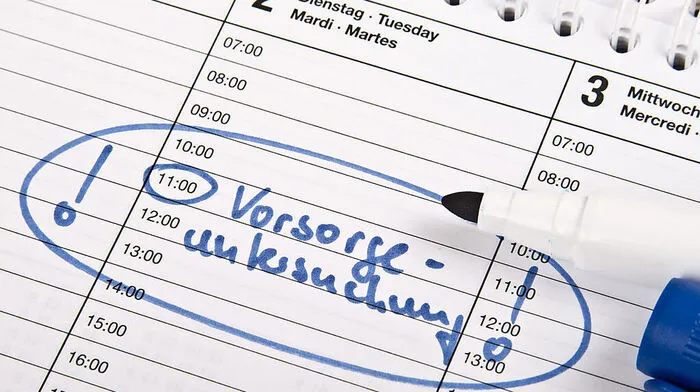 2
Dienstag · Tuesday
Mardi · Martes
07:00
08:00
09:00
10:00
11:00
12:00
13:00
14:00
15:00
16:00
!
Vorsorge-
untersuchung
!
3
Mittwoch
Mercredi ·
07:00
08:00
10:00
11:00
12:00
13:00